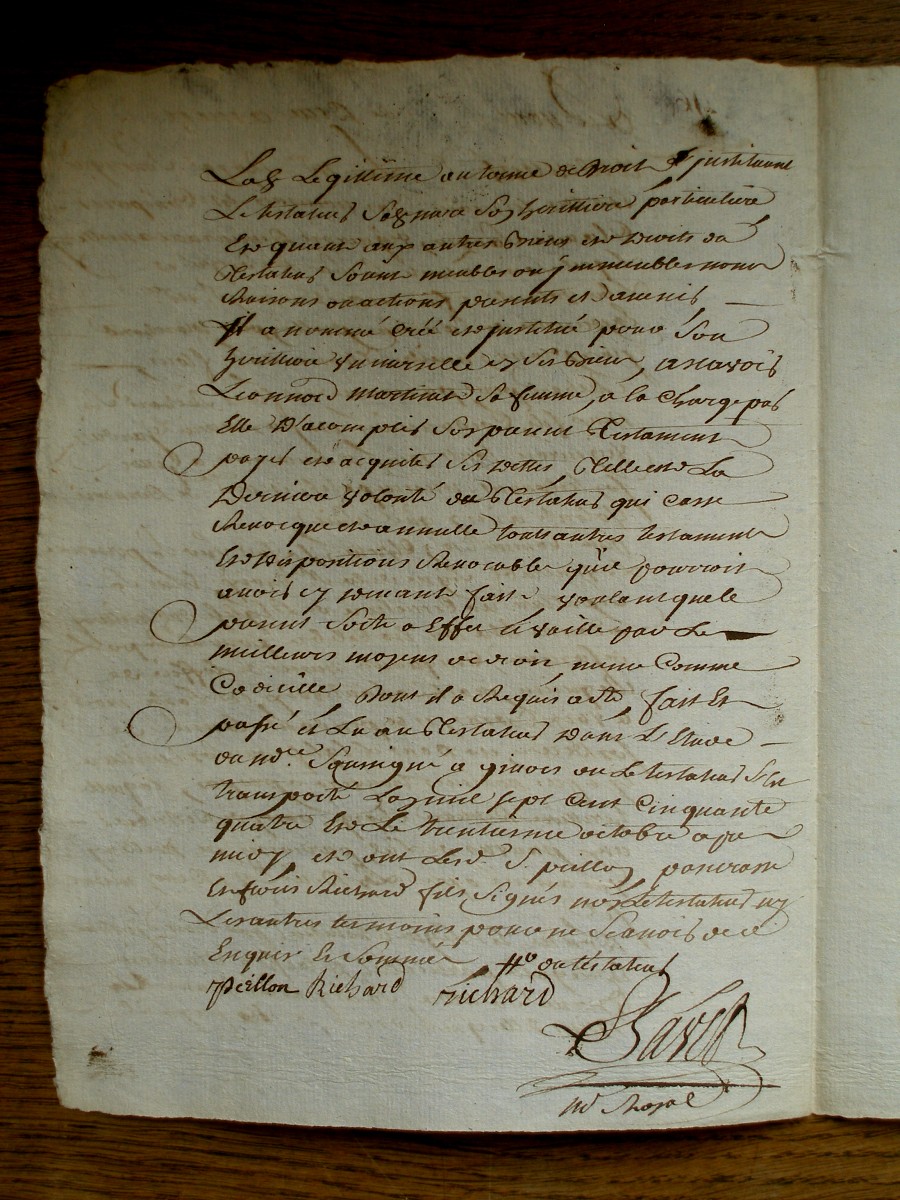 La legittime autonne de Droit et justituant
Le testateur sa heritiere particuliere
Et quant aux autres biens et Droits du
Testateur soint meubles ou jmmeubles noms
Raisons ou actions presents et avenir
Jl a nommé créé et justitué pour son
heritiere universelle en ses biens, a scavoir
Leonnord Martinat sa femme, a la charge par
Elle D'acomplir son present Testament
payer et acquiter ses dettes, Telle est La
Derniere volonté du Testateur qui casse
Revocque et annulle touts autres testament
Et Dispositions Revocables qu'il pourroit
avoir cy devant fait voulant que le
present sorte a Effet et vaille par Le
meilleurs moyens de droit meme Comme
Codicille Dont il a Requis acte fait Et
passé et Lu au Testateur Dans L'Etude
du nd.re a givors ou Le testateur s'est
transporté L'an mil sept cent cinquante
quatre et Le trentieme octobre apres
midy et ont Lesd. S. peillon
Et Richard fils signés non Le testateur ny
Les autres temoins pour ne scavoir de ce
Enquis Et Sommé du testateur
Peillon Richard Richard